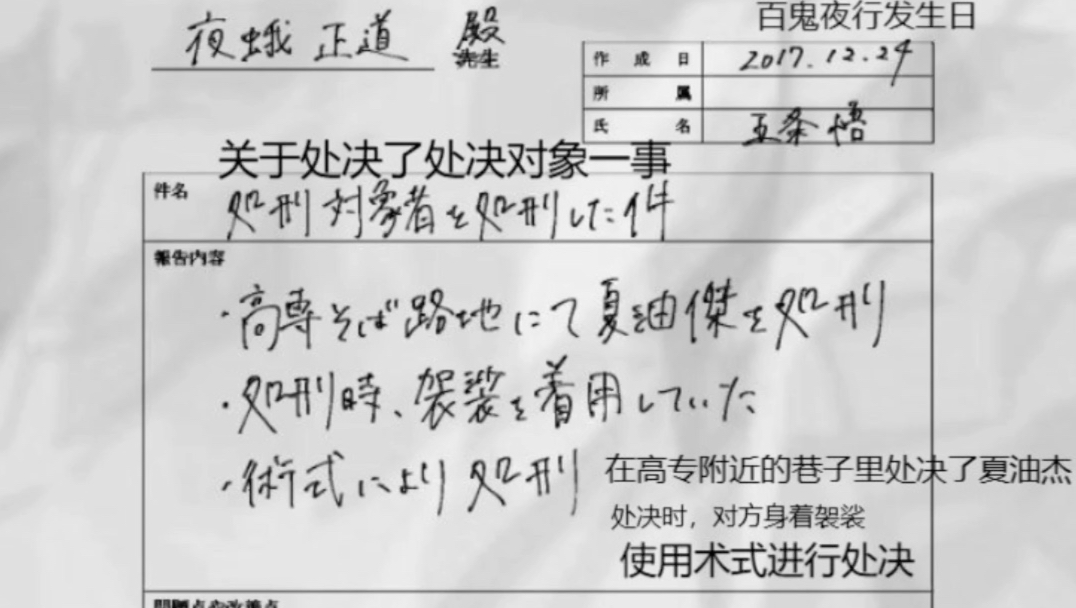 百鬼夜行发生日
夜蛾 正道 殿
先生
作成日 2017.12.24
所属
氏名 五条 悟
关于处决了处决对象一事
件名
処刑対象者を処刑した件
報告内容
・高専そば路地にて夏油傑を処刑
・処刑時、袈裟を着用していた
・術式により処刑
在高专附近的巷子里处决了夏油杰
处决时，对方身着袈裟
使用术式进行处决
問題点や改善点